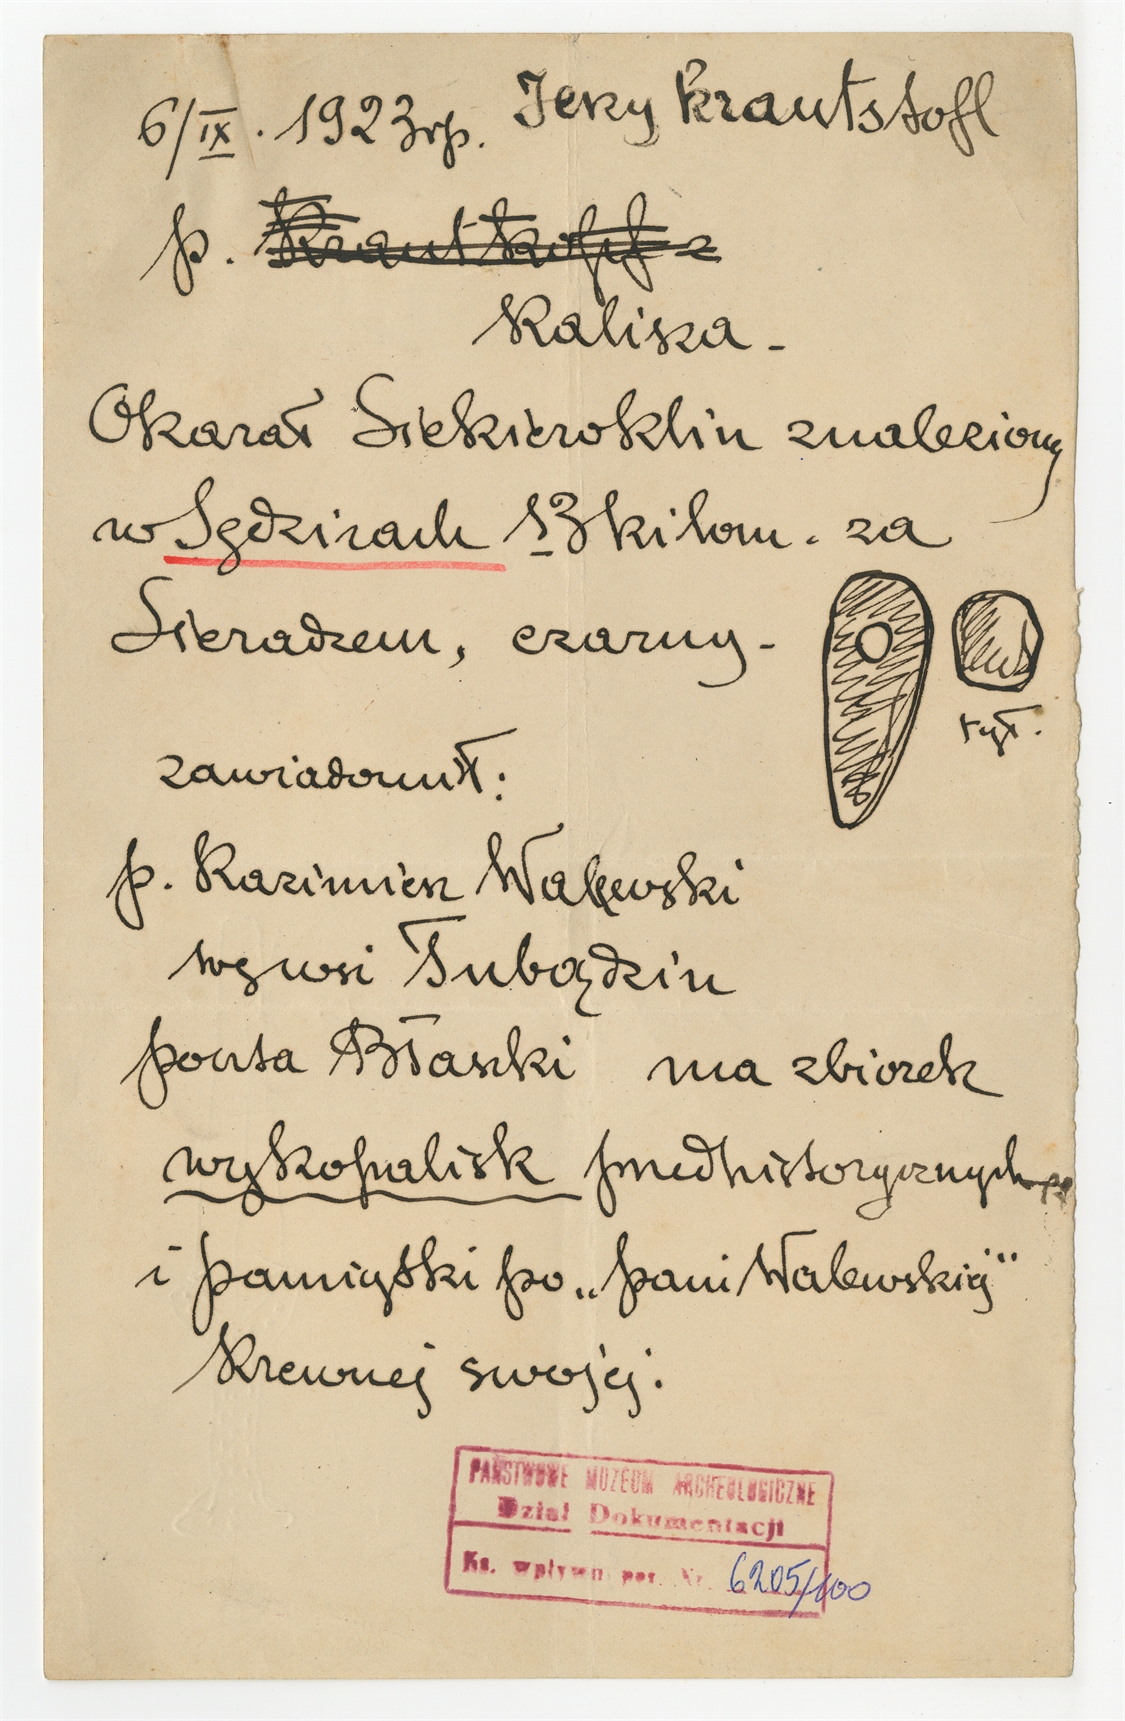 6/IX. 1923 rp. Jerzy Krautstofl
p. Krautkopf z
Kalisza -
Okazał Siekieroklin znaleziony
w Sędzicach 13 kilom. za
Sieradzem, czarny -
tył.
zawiadomił:
p. Kazimierz Walewski
we wsi Tubądzin
poczta Błaszki ma zbiorek
wykopalisk przedhistorycznych
i pamiątki po „pani Walewskiej"
krewnej swojej.
PAŃSTWOWE MUZEUM ARCHEOLOGICZNE
Dział Dokumentacji
Ks. wpływu poz. Nr. 6205/100